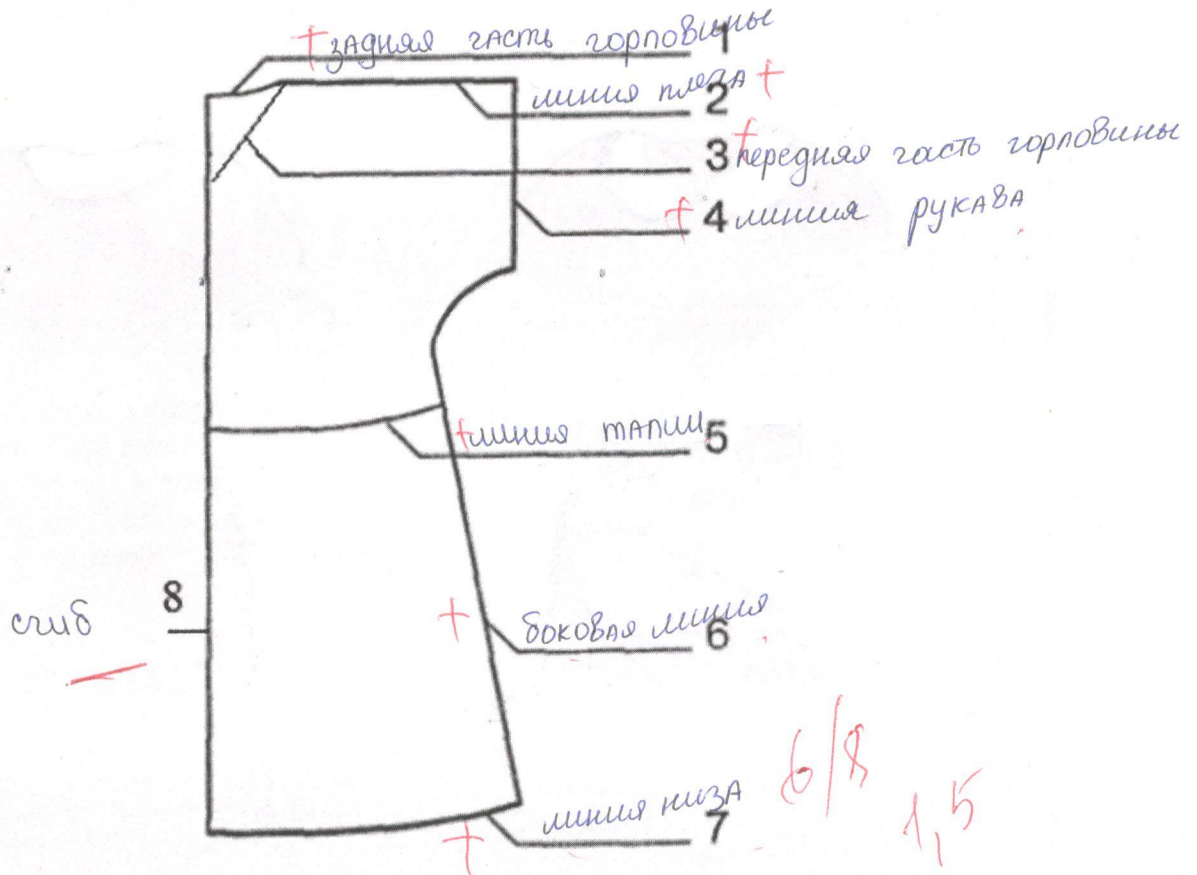 + задняя часть горловины 1
линия плеча 2 +
3 + передняя часть горловины
+ 4 линия рукава
+ линия талии 5
8
сгиб
—
+ боковая линия 6
6/8
линия низа 7
+
1,5